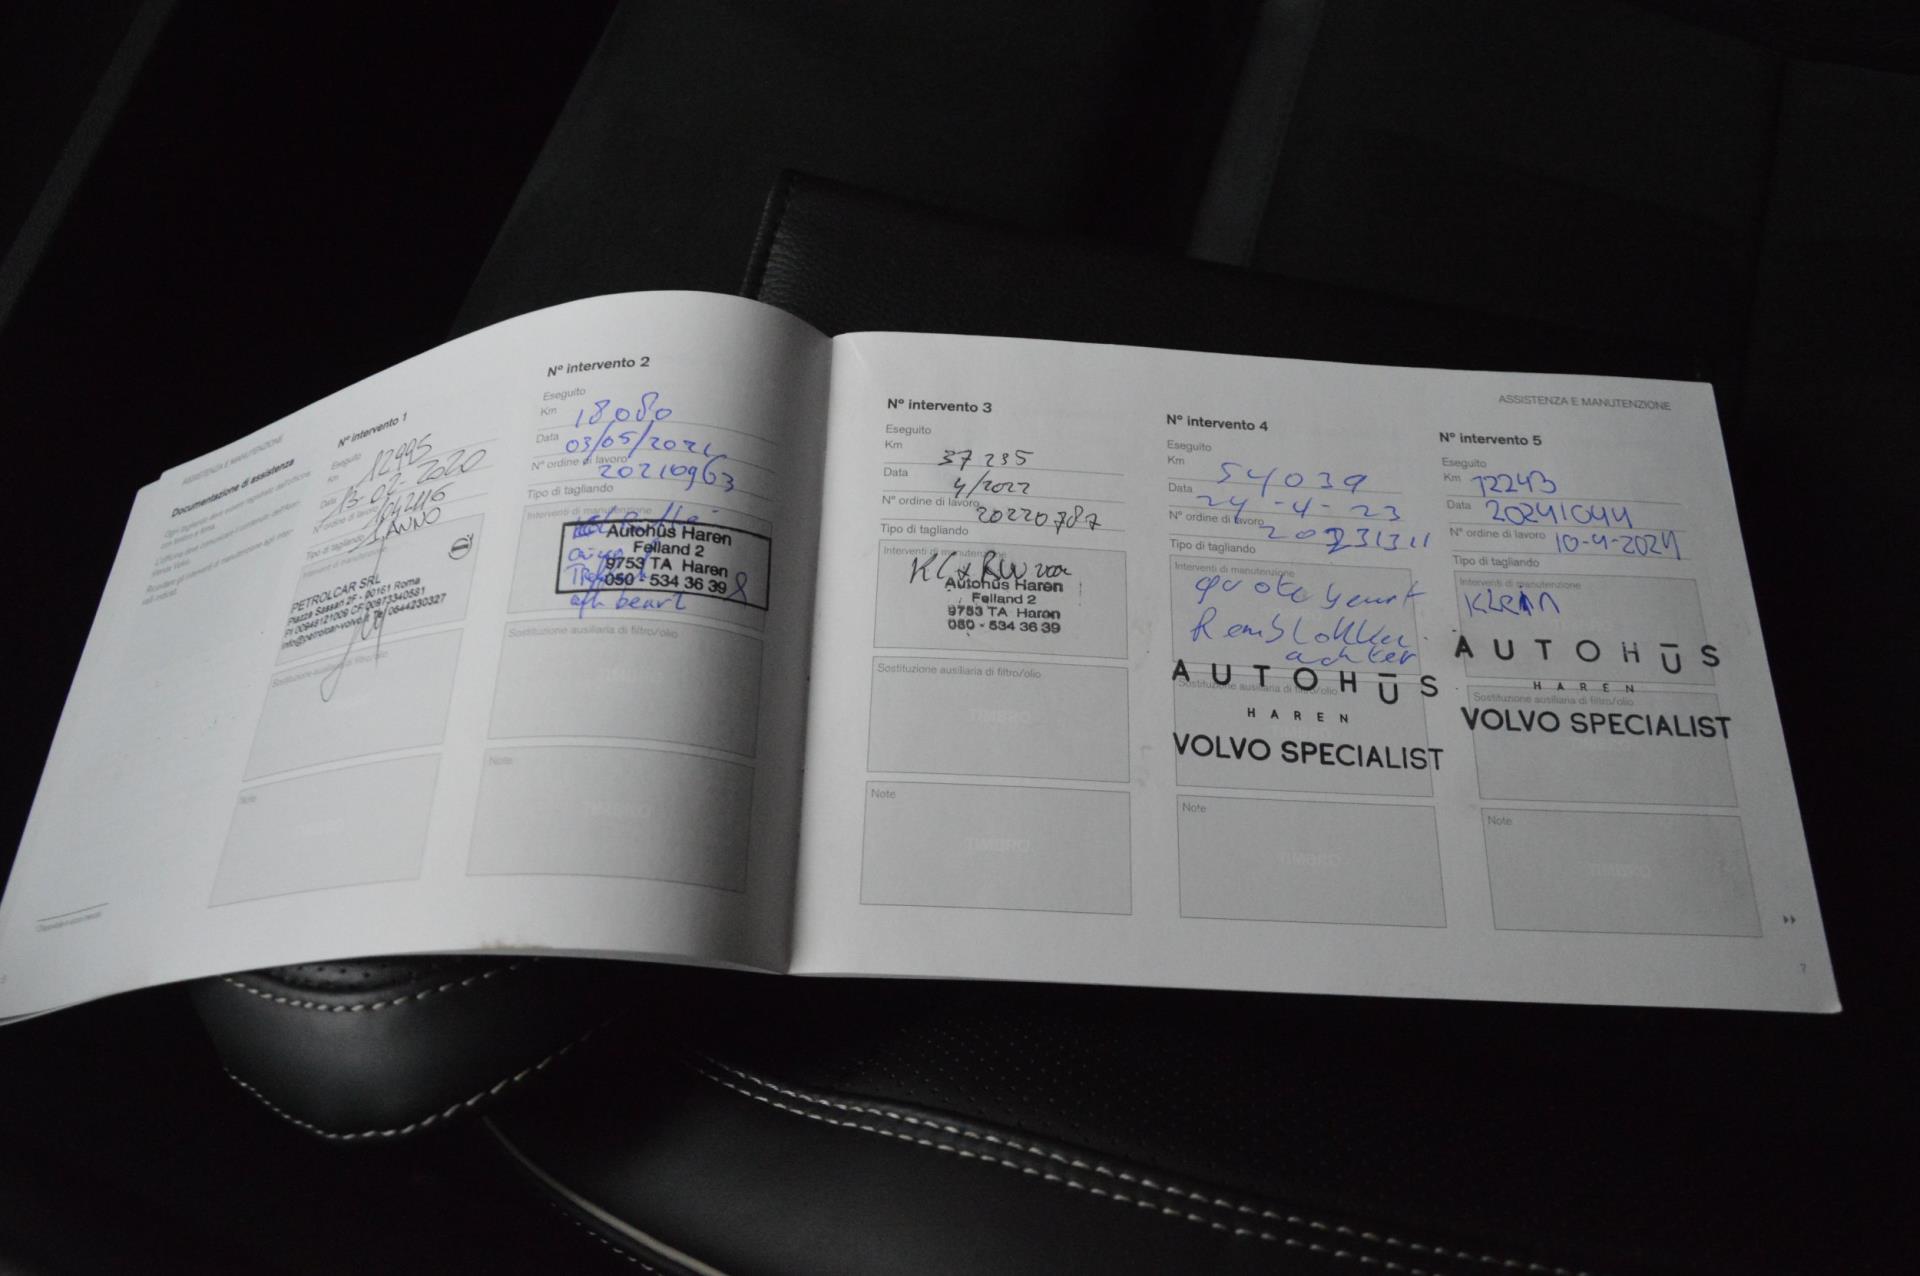 ASSISTENZA E MANUTENZIONE
Documentazione di assistenza
Nº intervento 1
Eseguito
Km 12995
Data 13-02-2020
Nº ordine di lavoro 1042116
Tipo di tagliando 1 ANNO
Interventi di manutenzione
PETROLCAR SRL
Piazza Sassari 2F - 00161 Roma
PI 00948121009 CF 00873340581
info@petrolcar-volvo.it Tel 0644230327
Sostituzione ausiliaria di filtro/olio
TIMBRO
Note
TIMBRO
Nº intervento 2
Eseguito
Km 18080
Data 03/05/2021
Nº ordine di lavoro
20210963
Tipo di tagliando
Interventi di manutenzione
Autohüs Haren
Felland 2
9753 TA Haren
050 - 534 36 39
beurt
Sostituzione ausiliaria di filtro/olio
TIMBRO
Note
TIMBRO
Nº intervento 3
Eseguito
Km 37235
Data 4/2022
Nº ordine di lavoro 20220787
Tipo di tagliando
Interventi di manutenzione
Autohüs Haren
Felland 2
9753 TA Haren
050 - 534 36 39
Sostituzione ausiliaria di filtro/olio
TIMBRO
Note
TIMBRO
Nº intervento 4
Eseguito
Km 54039
Data 24-4-23
Nº ordine di lavoro
Tipo di tagliando
Interventi di manutenzione
grote beurt
Remblokken
achter
AUTOHŪS
Sostituzione ausiliaria di filtro/olio
HAREN
VOLVO SPECIALIST
Note
TIMBRO
ASSISTENZA E MANUTENZIONE
Nº intervento 5
Eseguito
Km 72243
Data 20241044
Nº ordine di lavoro 10-4-2024
Tipo di tagliando
Interventi di manutenzione
KLEIN
AUTOHŪS
HAREN
Sostituzione ausiliaria di filtro/olio
VOLVO SPECIALIST
Note
TIMBRO
7